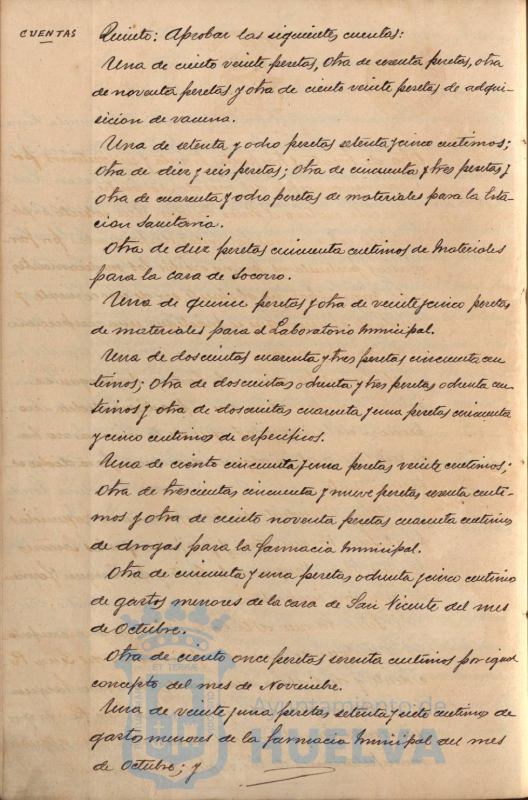 CUENTAS
Quinto: Aprobar las siguientes cuentas:
Una de ciento veinte pesetas, Otra de sesenta pesetas, otra
de noventa pesetas y otra de ciento veinte pesetas de adqui-
sicion de vacuna.
Una de setenta y ocho pesetas setenta y cinco centimos;
Otra de diez y seis pesetas; Otra de cincuenta y tres pesetas y
Otra de cuarenta y ocho pesetas de materiales para la Esta-
cion Sanitaria.
Otra de diez pesetas cincuenta centimos de Materiales
para la casa de Socorro.
Una de quince pesetas y otra de veinte y cinco pesetas
de materiales para el Laboratorio Municipal.
Una de doscientas cuarenta y tres pesetas cincuenta cen-
timos; Otra de doscientas ochenta y tres pesetas ochenta cen-
timos y otra de doscientas cuarenta y una pesetas cincuenta
y cinco centimos de especificos.
Una de ciento cincuenta y una pesetas veinte centimos;
Otra de trescientas cincuenta y nueve pesetas sesenta centi-
mos y otra de ciento noventa pesetas cuarenta centimos
de drogas para la farmacia Municipal.
Otra de cincuenta y una pesetas ochenta y cinco centimos
de gastos menores de la casa de San Vicente del mes
de Octubre.
Otra de ciento once pesetas sesenta centimos por igual
concepto del mes de Noviembre.
Una de veinte y una pesetas setenta y siete centimos de
gastos menores de la farmacia Municipal del mes
de Octubre; y
Ayuntamiento de
HUELVA